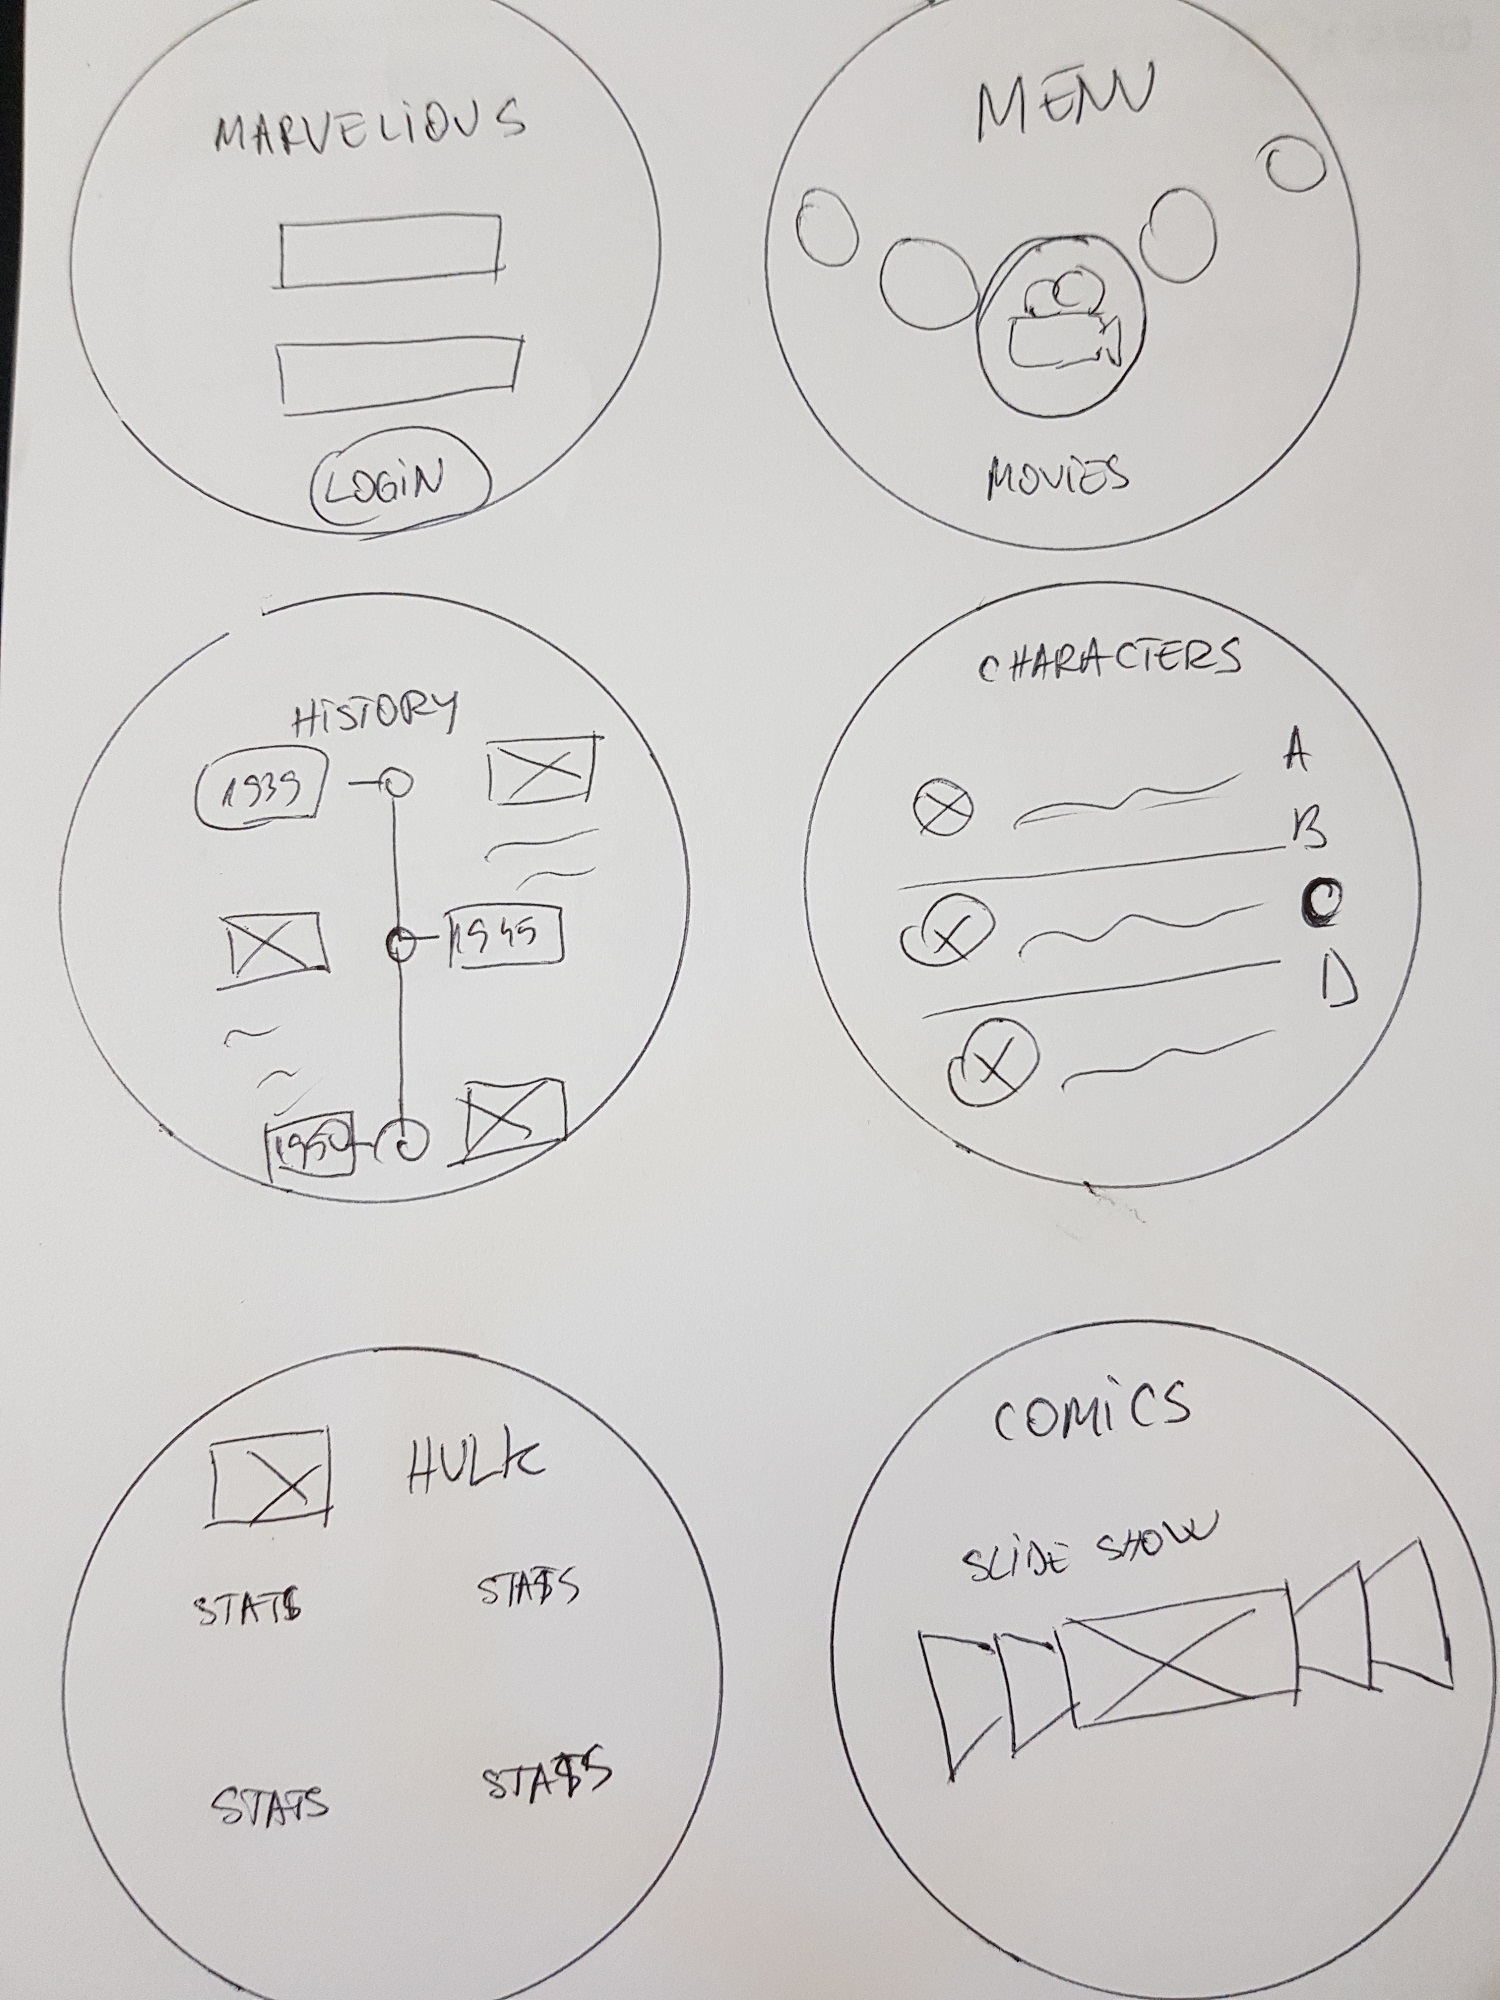 MARVELIOUS
LOGIN
MENU
MOVIES
HISTORY
1939
1945
1950
CHARACTERS
A
B
C
D
HULK
STATS
STATS
STATS
STATS
COMICS
SLIDE SHOW